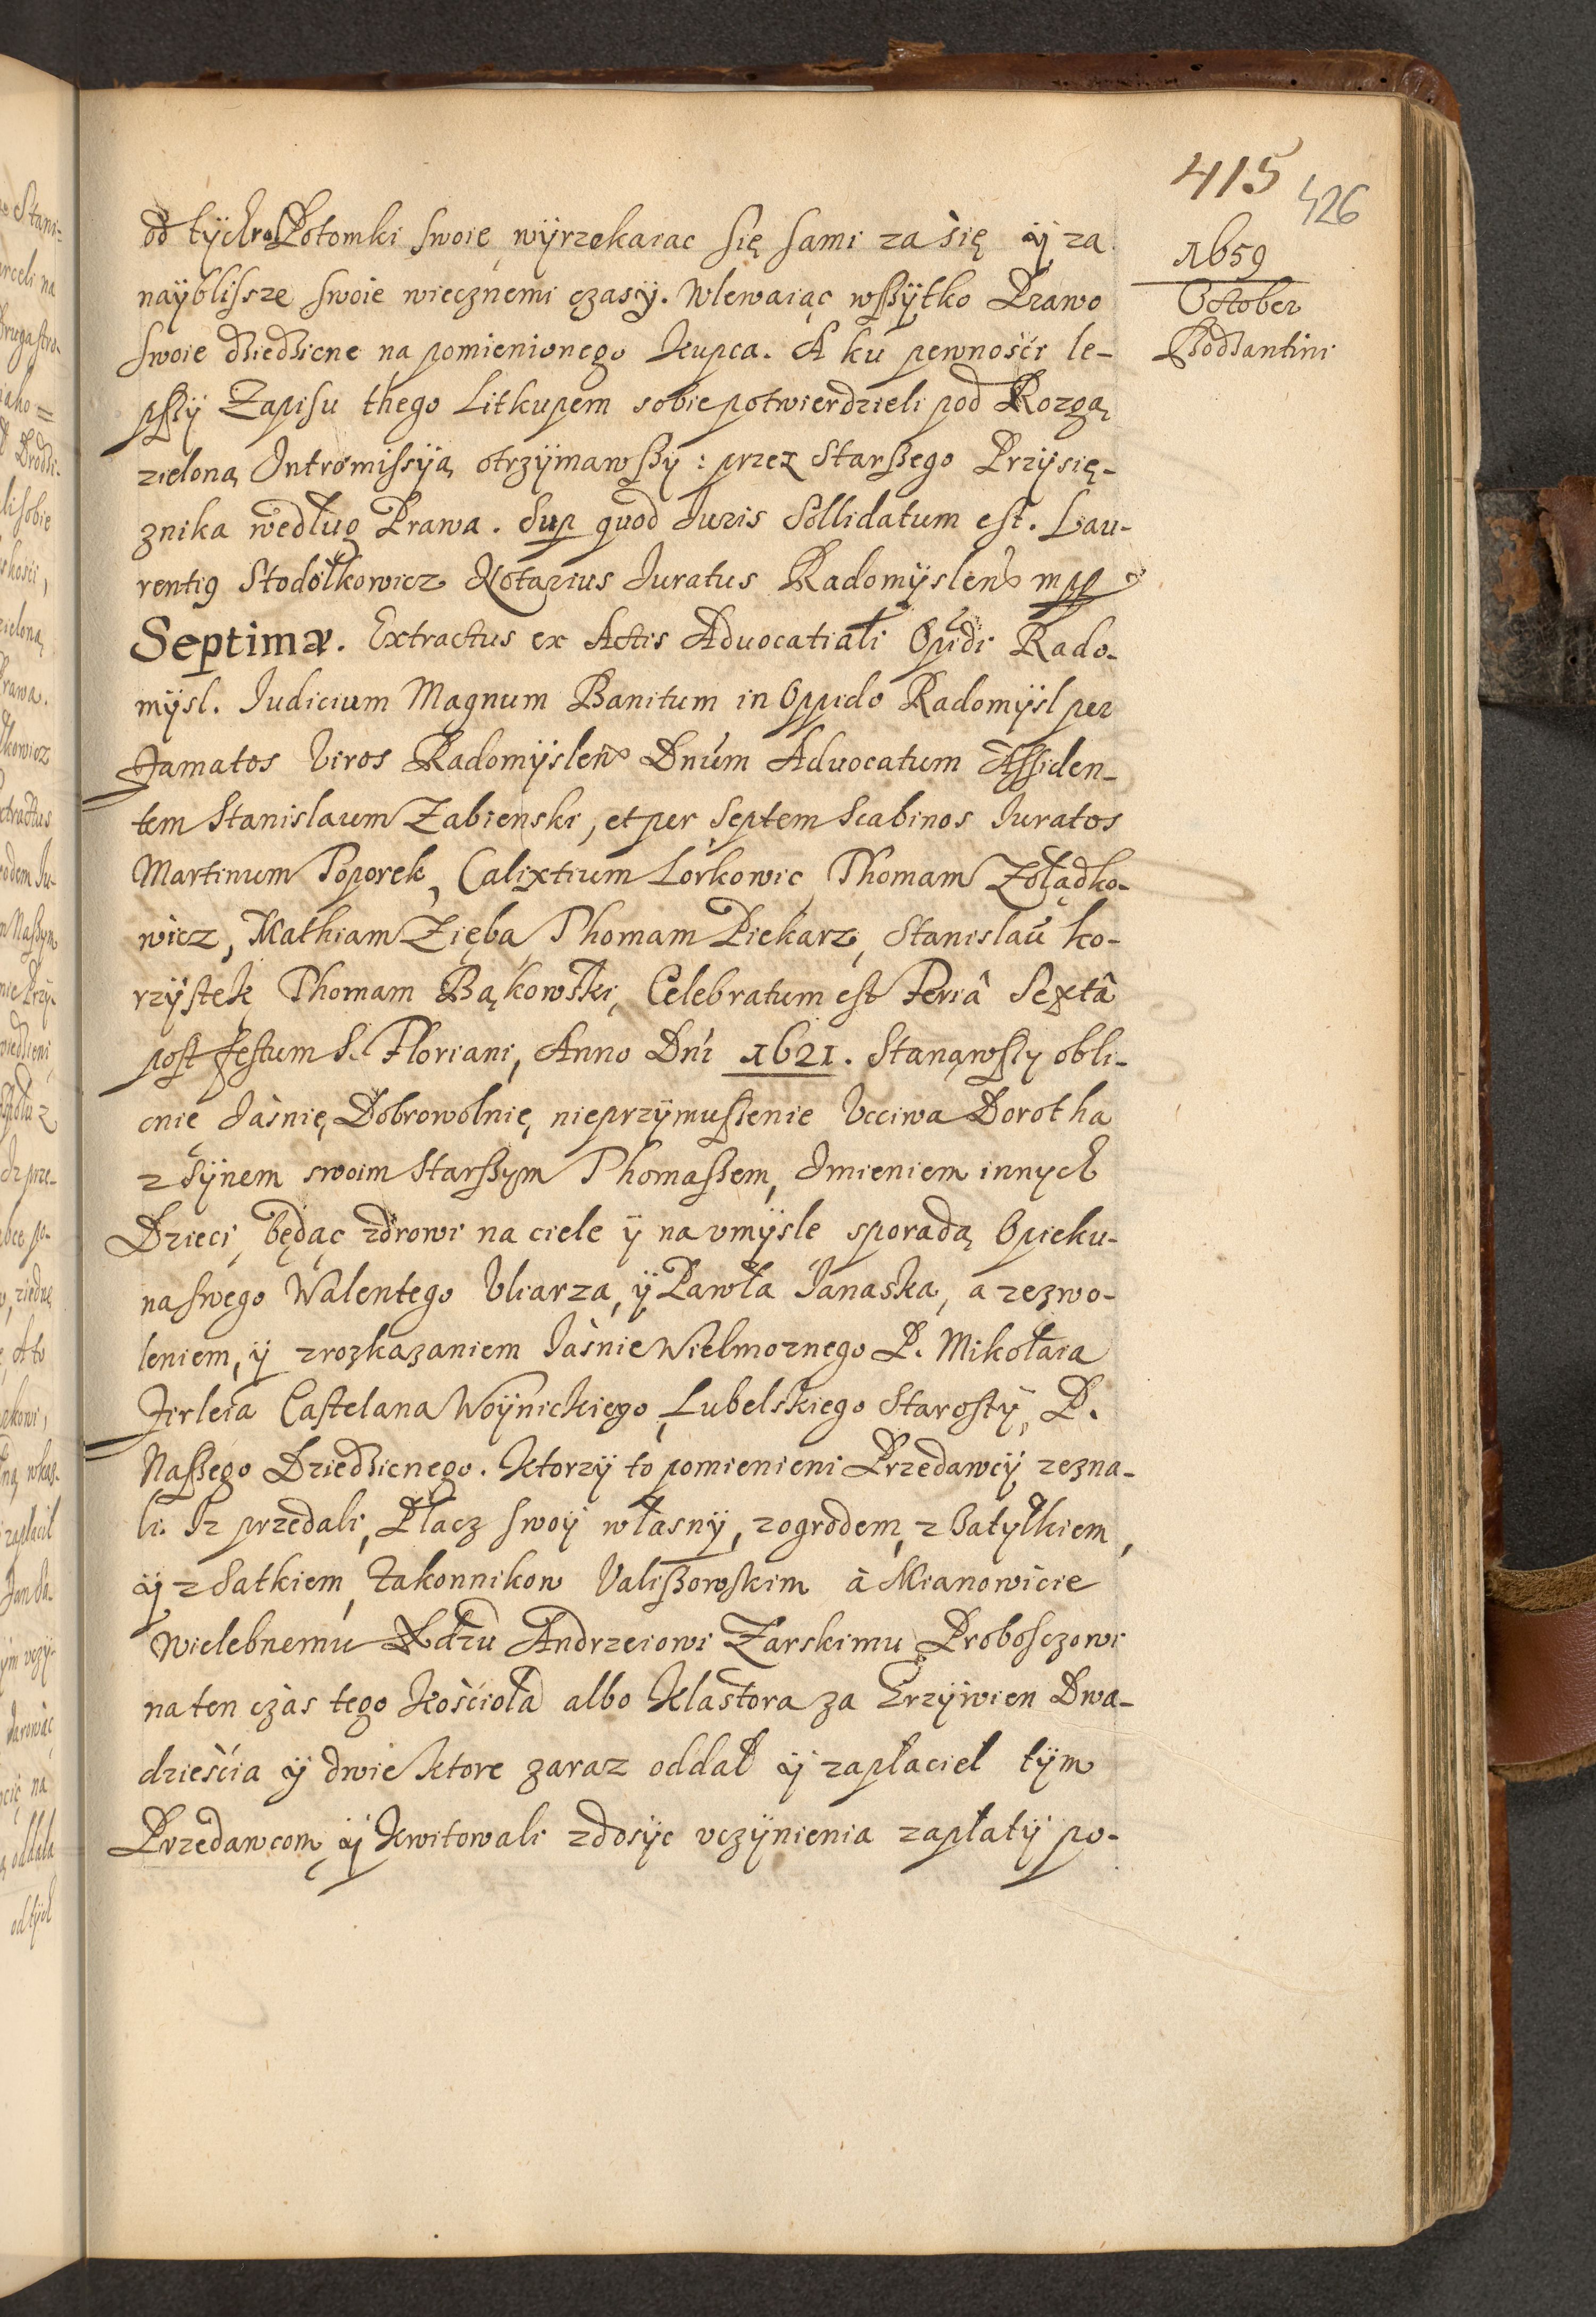 415
426
1659
October
Bodzantini
od tych Potomki swoie wyrzekaiac się sami za się ÿ za
naÿblissze swoie wiecznemi czasÿ. Wlewaiąc wszÿtko Prawo
swoie dziedzicne na pomienionego Kupca. A ku pewnośći le-
pszÿ Zapisu thego Litkupem sobie potwierdzieli pod Rozgą
zieloną Intromissyą otrzÿmawszÿ: przez Starszego Przÿsię-
znika według Prawa. Sup quod Iuris Sollidatum est. Lau-
rentig Stodołkowicz Notarius Iuratus Radomÿslen mpp
Septima. Extractus ex Actis Advocatiali Opidi Rado-
mÿsl. Iudicium Magnum Banitum in Oppido Radomÿsl per
Famatos Viros Radomÿslen Dnum Advocatum Assiden-
tem Stanislaum Zabienski, et per Septem Scabinos Iuratos
Martinum Toporek, Calixtium Lorkowic, Thomam Zołądko-
wicz, Mathiam Zięba, Thomam Piekarz, Stanislaŭ Ko-
rzÿstek, Thomam Bąkowski, Celebratum est Feriâ Sextâ
post festum S. Floriani, Anno Dni 1621. Stanąwszy obli-
cnie Iaśnię, Dobrowolnię, nieprzÿmuszenie Vcciwa Dorotha
z Sÿnem swoim Starszym Thomaszem, Imieniem innych
Dzieci, będąc zdrowi na ciele ÿ na vmÿsle sporadą Opieku-
na swego Walentego Vliarza, ÿ Pawła Ianaska, a zezwo-
leniem, ÿ zrozkazaniem Iaśnie Wielmoznego P. Mikołaia
Firleia Castelana Woÿnickiego, Lubelskiego Starostÿ, P.
Naszego Dziedzicnego. Ktorzÿ to pomienieni Przedawcÿ zezna-
li. Iz przedali, Płacz swoÿ własnÿ, zogrodem, z Batyłkiem,
ÿ z Satkiem, Zakonnikow Valiszowskim à Mianowicie
Wielebnemu Xdzu Andrzeiowi Zarskimu Proboszczowi
na ten czàs tego Kośćioła albo Klastora za Grzÿwien Dwa-
dzieśćia ÿ dwie ktore zaraz oddał ÿ zapłaciel tÿm
Przedawcom, ÿ Kwitowali zdosÿc vczÿnienia zapłatÿ po-